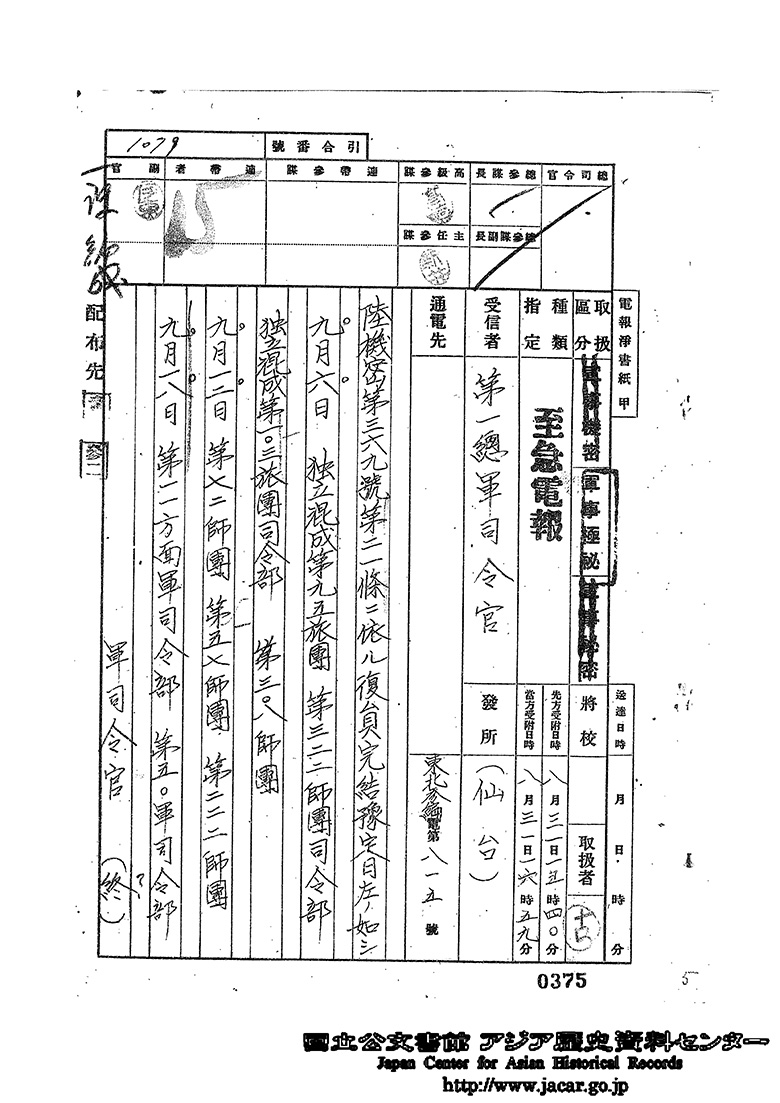 引合番號
1079
總司令官
總參謀長
高級參謀
連帶參謀
連帶者
副官
總參謀副長
主任參謀
電報淨書紙 甲
取扱區分
軍事機密
軍事極祕
軍事祕密
種類
指定
至急電報
受信者
第一總軍司令官
通電先
送達日時
月 日 時 分
將校
取扱者
先方受附日時
八月三一日一五時四〇分
當方受附日時
八月三一日一六時五九分
發所
(仙台)
東北參編電第 八一五 號
陸機密第三六九號第二一條ニ依ル復員完結豫定日左ノ如シ
九月六日 独立混成第九五旅團 第三二二師團司令部
独立混成第一〇三旅團司令部 第三〇八師團
九月一二日 第七二師團 第五七師團 第二二二師團
九月一八日 第一一方面軍司令部 第五〇軍司令部
軍司令官 (終)
配布先
參二
編成
0375
5
國立公文書館 アジア歴史資料センター
Japan Center for Asian Historical Records
http://www.jacar.go.jp